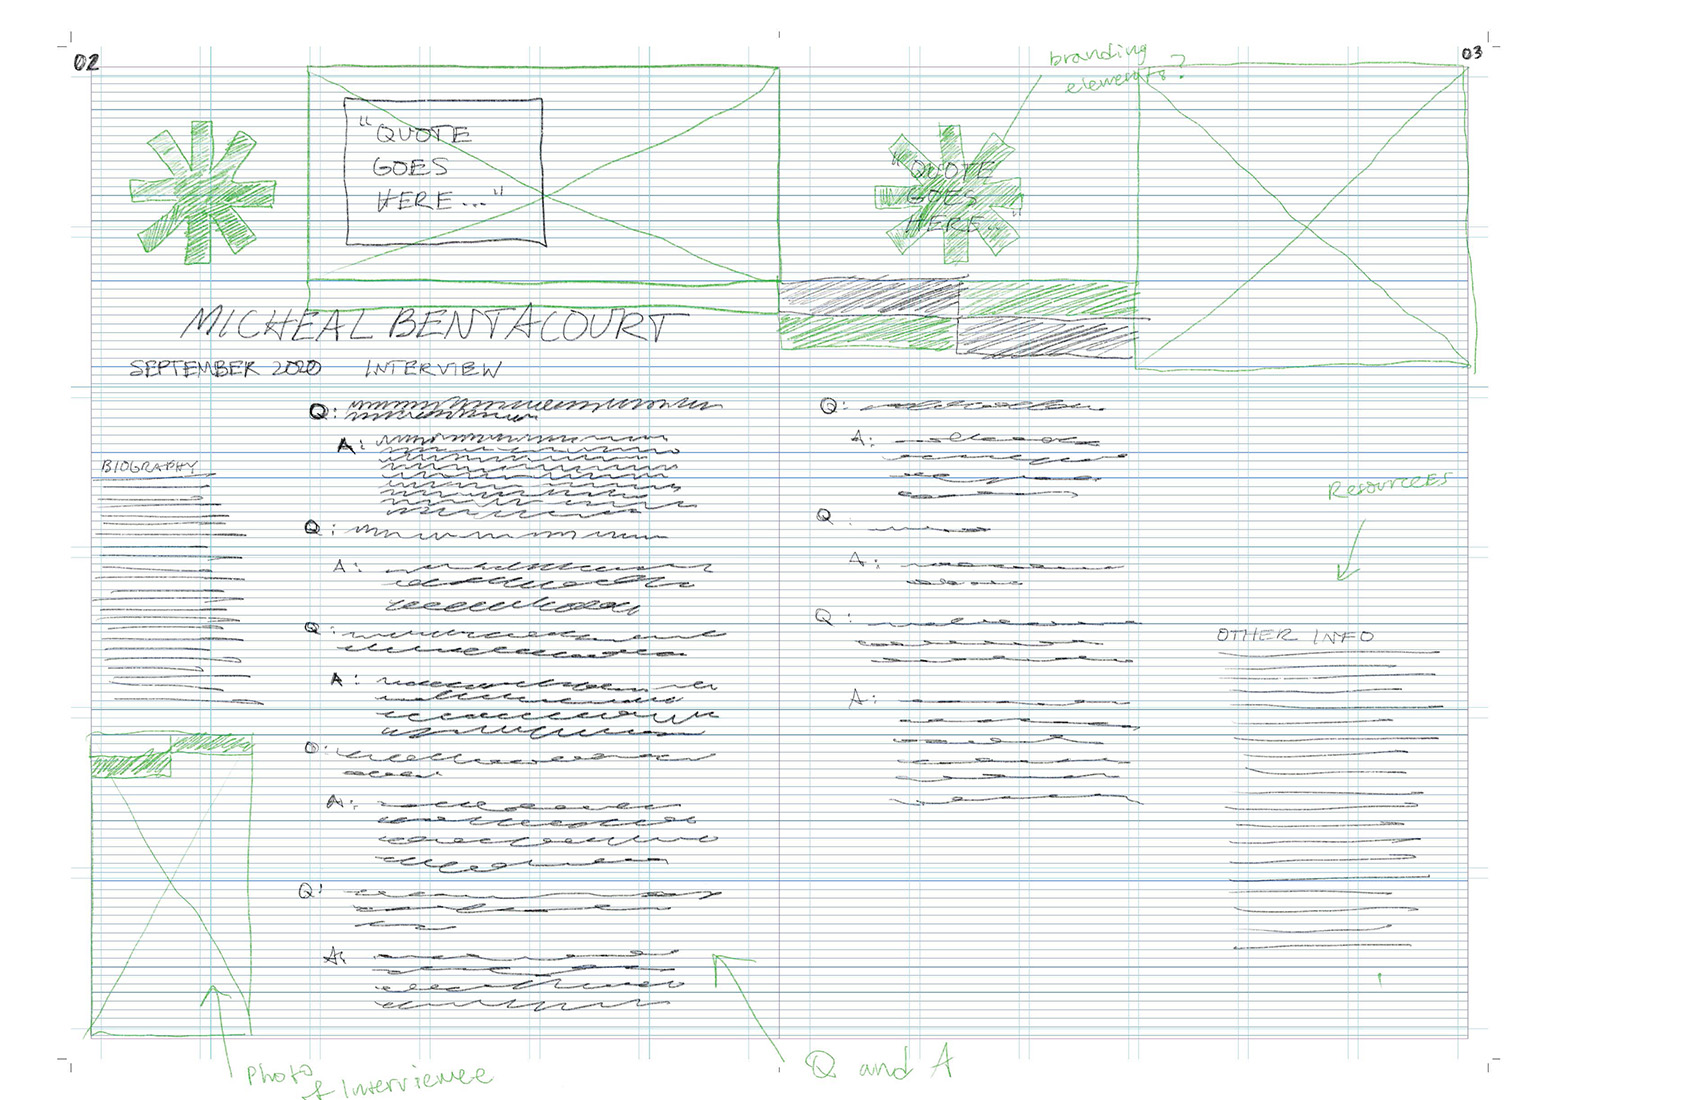 02
03
branding
elements?
"QUOTE
GOES
HERE..."
"QUOTE
GOES
HERE.."
MICHEAL BENTACOURT
SEPTEMBER 2020 INTERVIEW
BIOGRAPHY
Q:
A:
Q:
A:
Q:
A:
Q:
A:
Q:
A:
Q:
A:
Q:
A:
Q:
A:
Resources
OTHER INFO
Photo
of Interviewee
Q and A